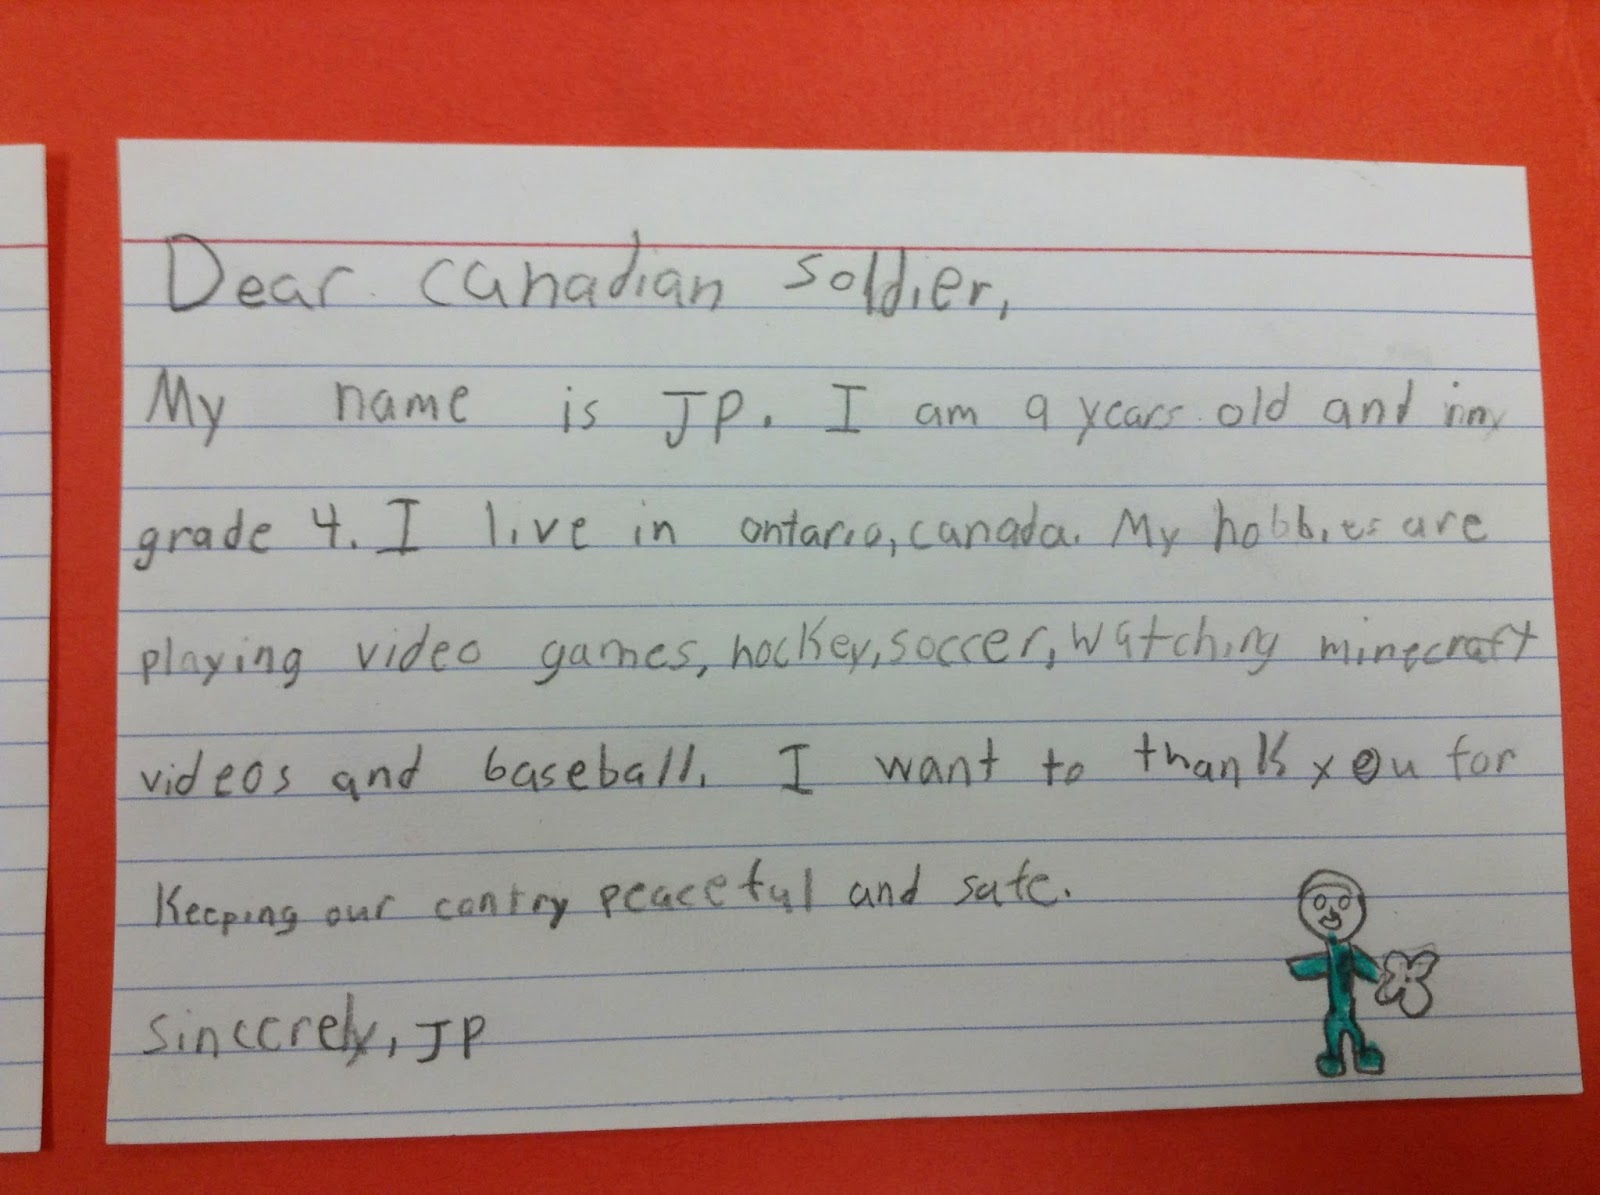 Dear canadian soldier,
My name is JP. I am 9 years old and in
grade 4. I live in ontario, canada. My hobbies are
playing video games, hockey, soccer, watching minecraft
videos and baseball. I want to thank you for
Keeping our contry peaceful and safe.
Sincerely, JP